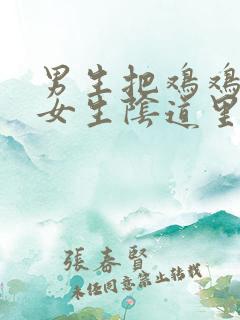 男生把鸡鸡
女生陰道里
張春賢
未经同意禁止转载